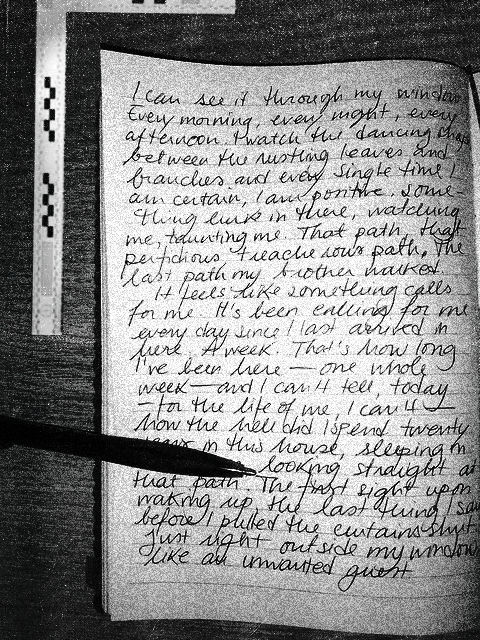 I can see it through my window
Every morning, every night, every
afternoon. I watch the dancing shape
between the rustling leaves and
branches and every single time I
am certain, I am positive, some
thing lurks in there, watching
me, taunting me. That path, that
perfidious treacherous path. The
last path my brother walked.
It feels like something calls
for me. It's been calling for me
every day since I last arrived in
here. A week. That's how long
I've been here — one whole
week — and I can't tell, today
— for the life of me, I can't —
how the hell did I spend twenty
years in this house, sleeping in
looking straight at
that path. The first sight upon
waking up, the last thing I saw
before I pulled the curtains shut.
Just right outside my window
like an unwanted guest